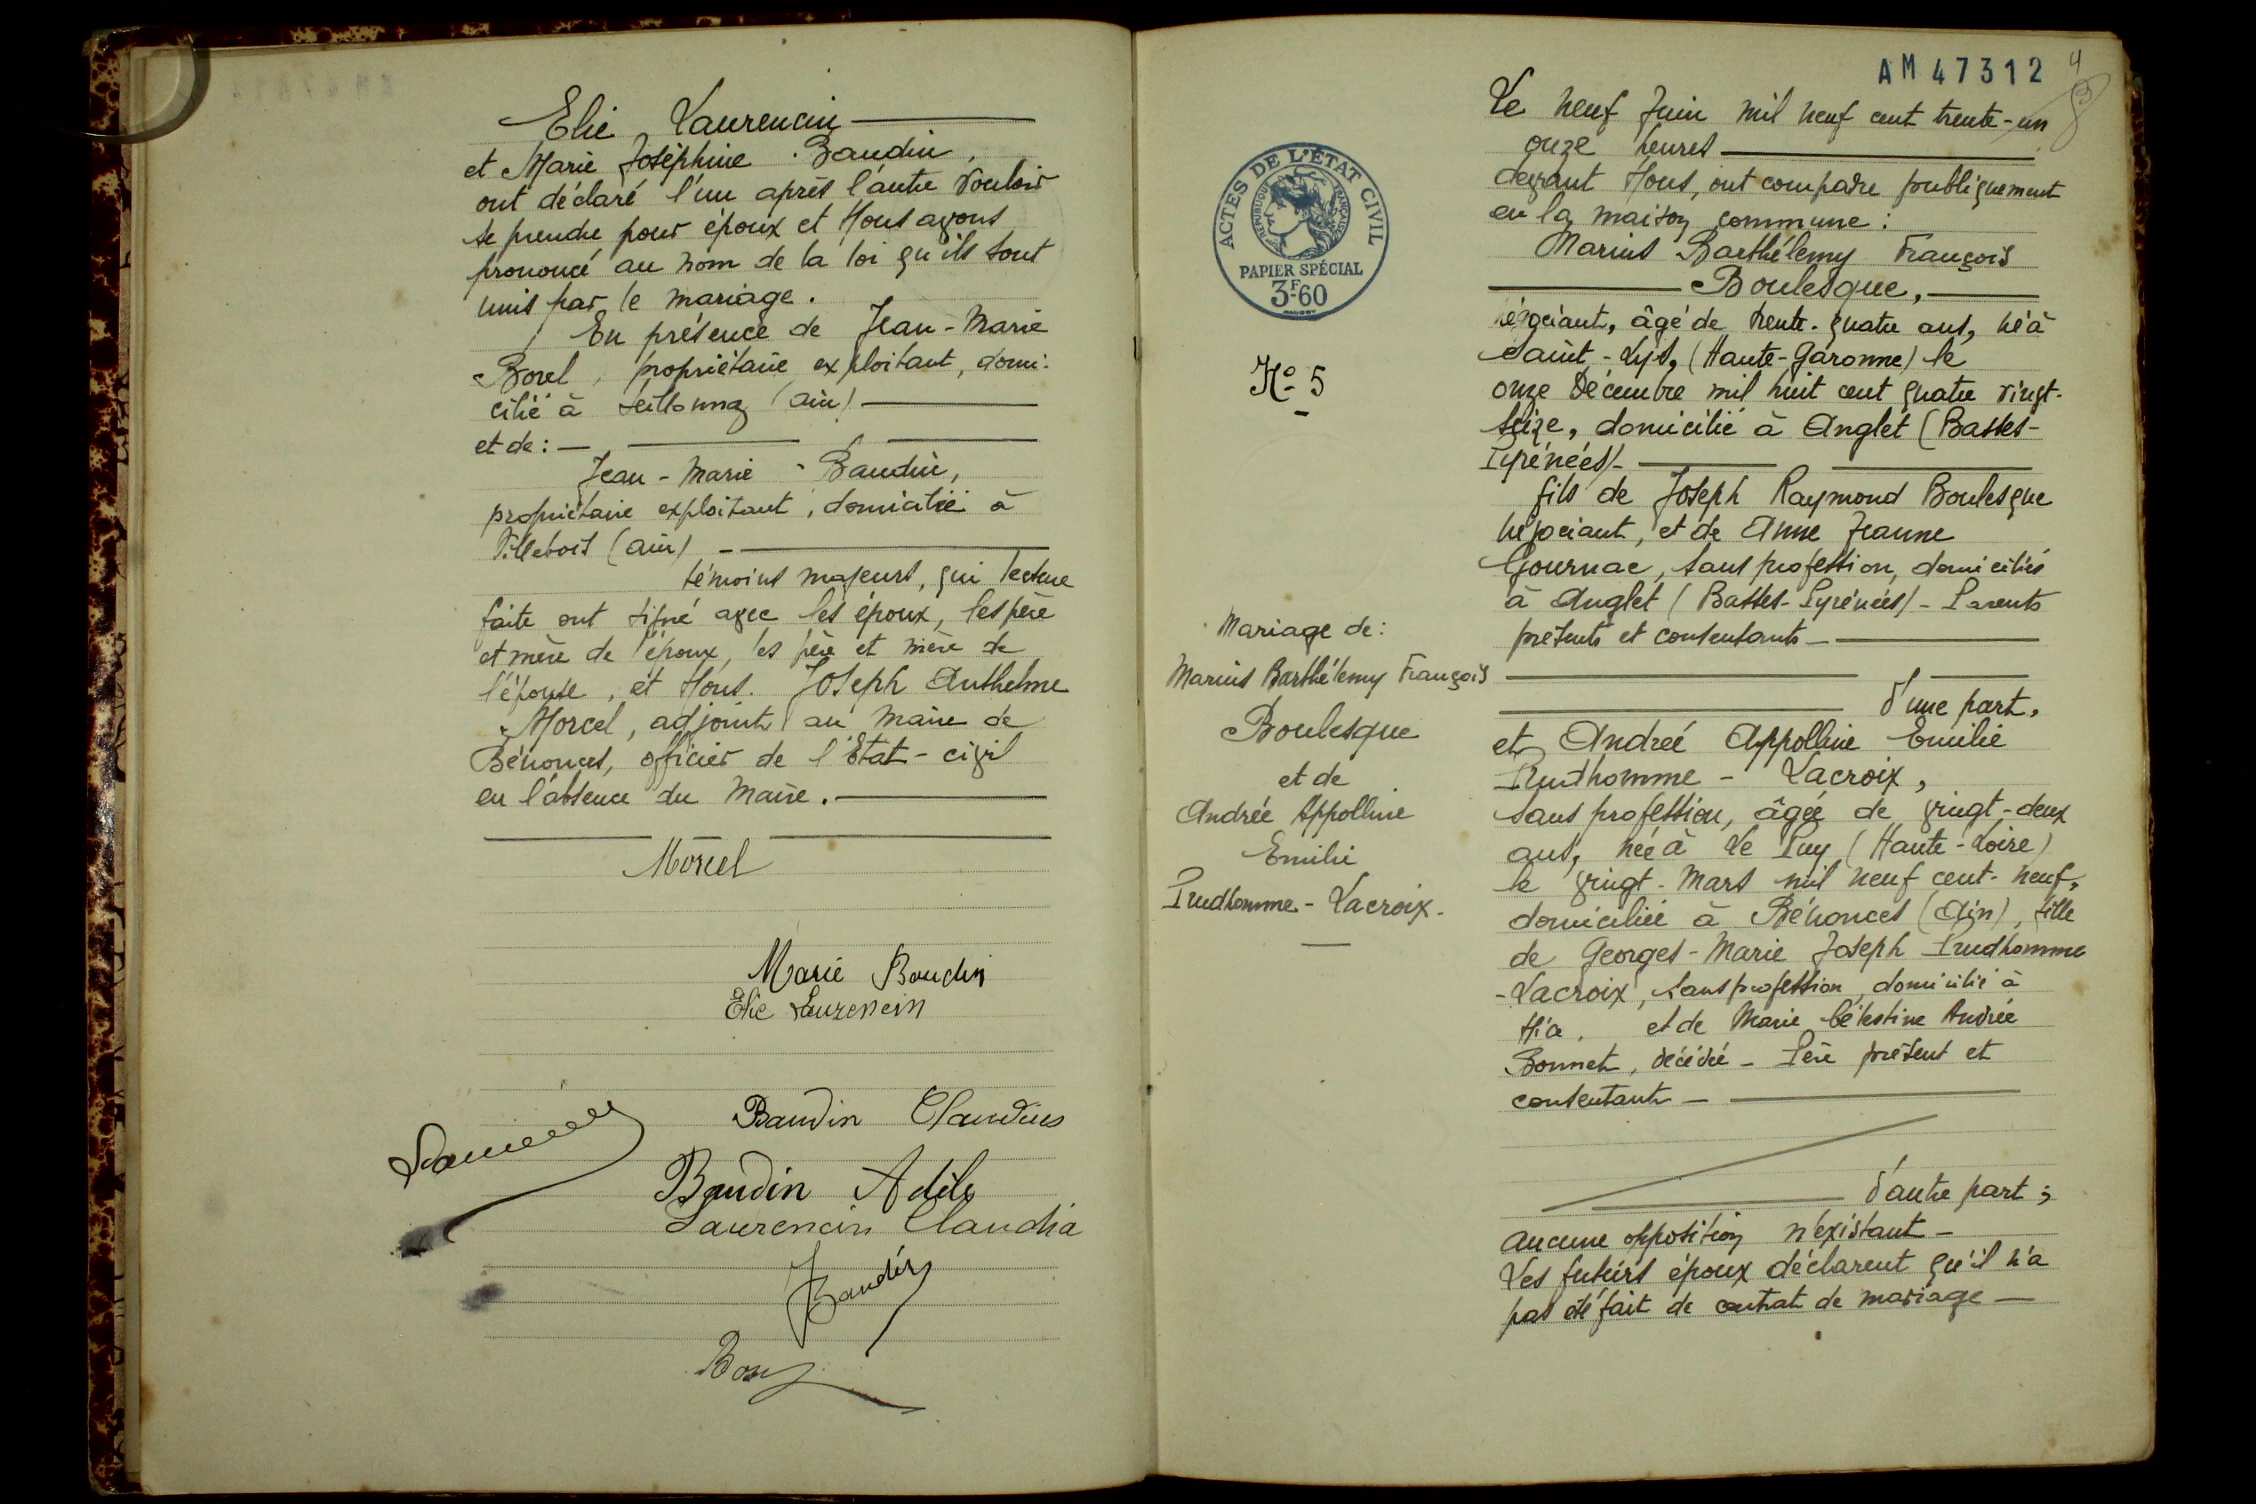 Elie Laurencin
et Marie Joséphine Baudin,
ont déclaré l'un après l'autre vouloir
se prendre pour époux et Nous avons
prononcé au nom de la loi qu'ils sont
unis par le mariage.
En présence de Jean-Marie
Borel, propriétaire exploitant, domi-
cilié à Seillonnaz (Ain)
et de : —
Jean-Marie Baudin,
propriétaire exploitant, domicilié à
Villebois (Ain) —
témoins majeurs, qui lecture
faite ont signé avec les époux, les père
et mère de l'époux, les père et mère de
l'épouse, et Nous. Joseph Anthelme
Morcel, adjoint au Maire de
Bénonces, officier de l'Etat-civil
en l'absence du Maire.
Morcel
Marie Baudin
Elie Laurencin
Baudin Claudius
Baudin Adèle
Laurencin Claudia
J Baudin
AM 47312
4
ACTES DE L'ÉTAT CIVIL
RÉPUBLIQUE FRANÇAISE
PAPIER SPÉCIAL
3F60
No 5
Mariage de :
Marius Barthélemy François
Boulesque
et de
Andrée Appolline
Emilie
Prudhomme - Lacroix.
Le neuf Juin mil neuf cent trente-un
onze heures
devant Nous, ont comparu publiquement
en la maison commune :
Marius Barthélemy François
Boulesque,
négociant, âgé de trente-quatre ans, né à
Saint-Lys, (Haute-Garonne) le
onze Décembre mil huit cent quatre vingt-
seize, domicilié à Anglet (Basses-
Pyrénées)-
fils de Joseph Raymond Boulesque
négociant, et de Anne Jeanne
Gournac, sans profession, domiciliés
à Anglet (Basses-Pyrénées) - Parents
présents et consentants —
d'une part,
et Andreé Appolline Emilie
Prudhomme - Lacroix,
sans profession, âgée de vingt-deux
ans, née à Le Puy (Haute-Loire)
le vingt-Mars mil neuf cent-neuf,
domiciliée à Bénonces (Ain), fille
de Georges-Marie Joseph Prudhomme
-Lacroix, sans profession, domicilié à
et de Marie Célestine Andrée
Bonnet, décédée - Père présent et
consentant —
d'autre part ;
aucune opposition n'existant -
Les futurs époux déclarent qu'il n'a
pas été fait de contrat de mariage —